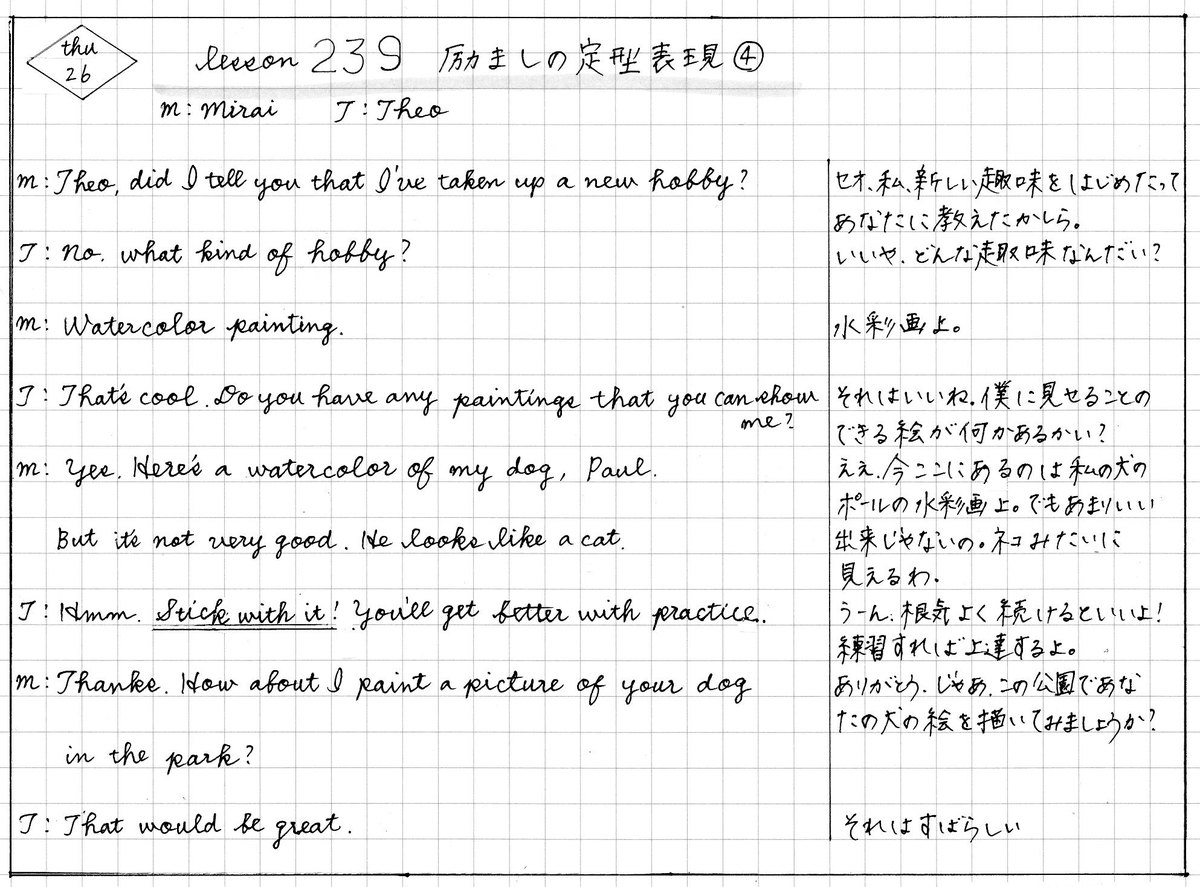 thu
26
lesson 239 励ましの定型表現④
M: Mirai T: Theo
M: Theo, did I tell you that I've taken up a new hobby?
セオ、私、新しい趣味をはじめたって
あなたに教えたかしら。
T: No. what kind of hobby?
いいや、どんな趣味なんだい?
M: Watercolor painting.
水彩画よ。
T: That's cool. Do you have any paintings that you can show
me?
それはいいね。僕に見せることの
できる絵が何かあるかい?
M: Yes. Here's a watercolor of my dog, Paul.
ええ、今ここにあるのは私の犬の
ポールの水彩画よ。でもあまりいい
But it's not very good. He looks like a cat.
出来じゃないの。ネコみたいに
見えるわ。
T: Hmm. Stick with it! You'll get better with practice.
うーん、根気よく続けるといいよ!
練習すれば上達するよ。
M: Thanks. How about I paint a picture of your dog
in the park?
ありがとう。じゃあ、この公園であな
たの犬の絵を描いてみましょうか?
T: That would be great.
それはすばらしい